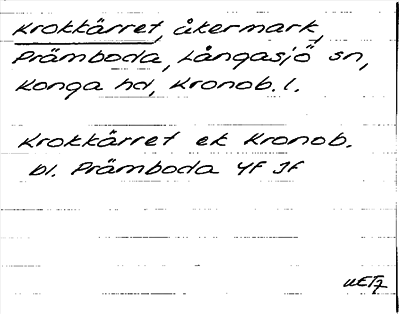 Krokkärret, åkermark,
Prämboda, Långasjö sn,
Konga hd, Kronob. l.
Krokkärret ek Kronob.
bl. Prämboda 4F JF